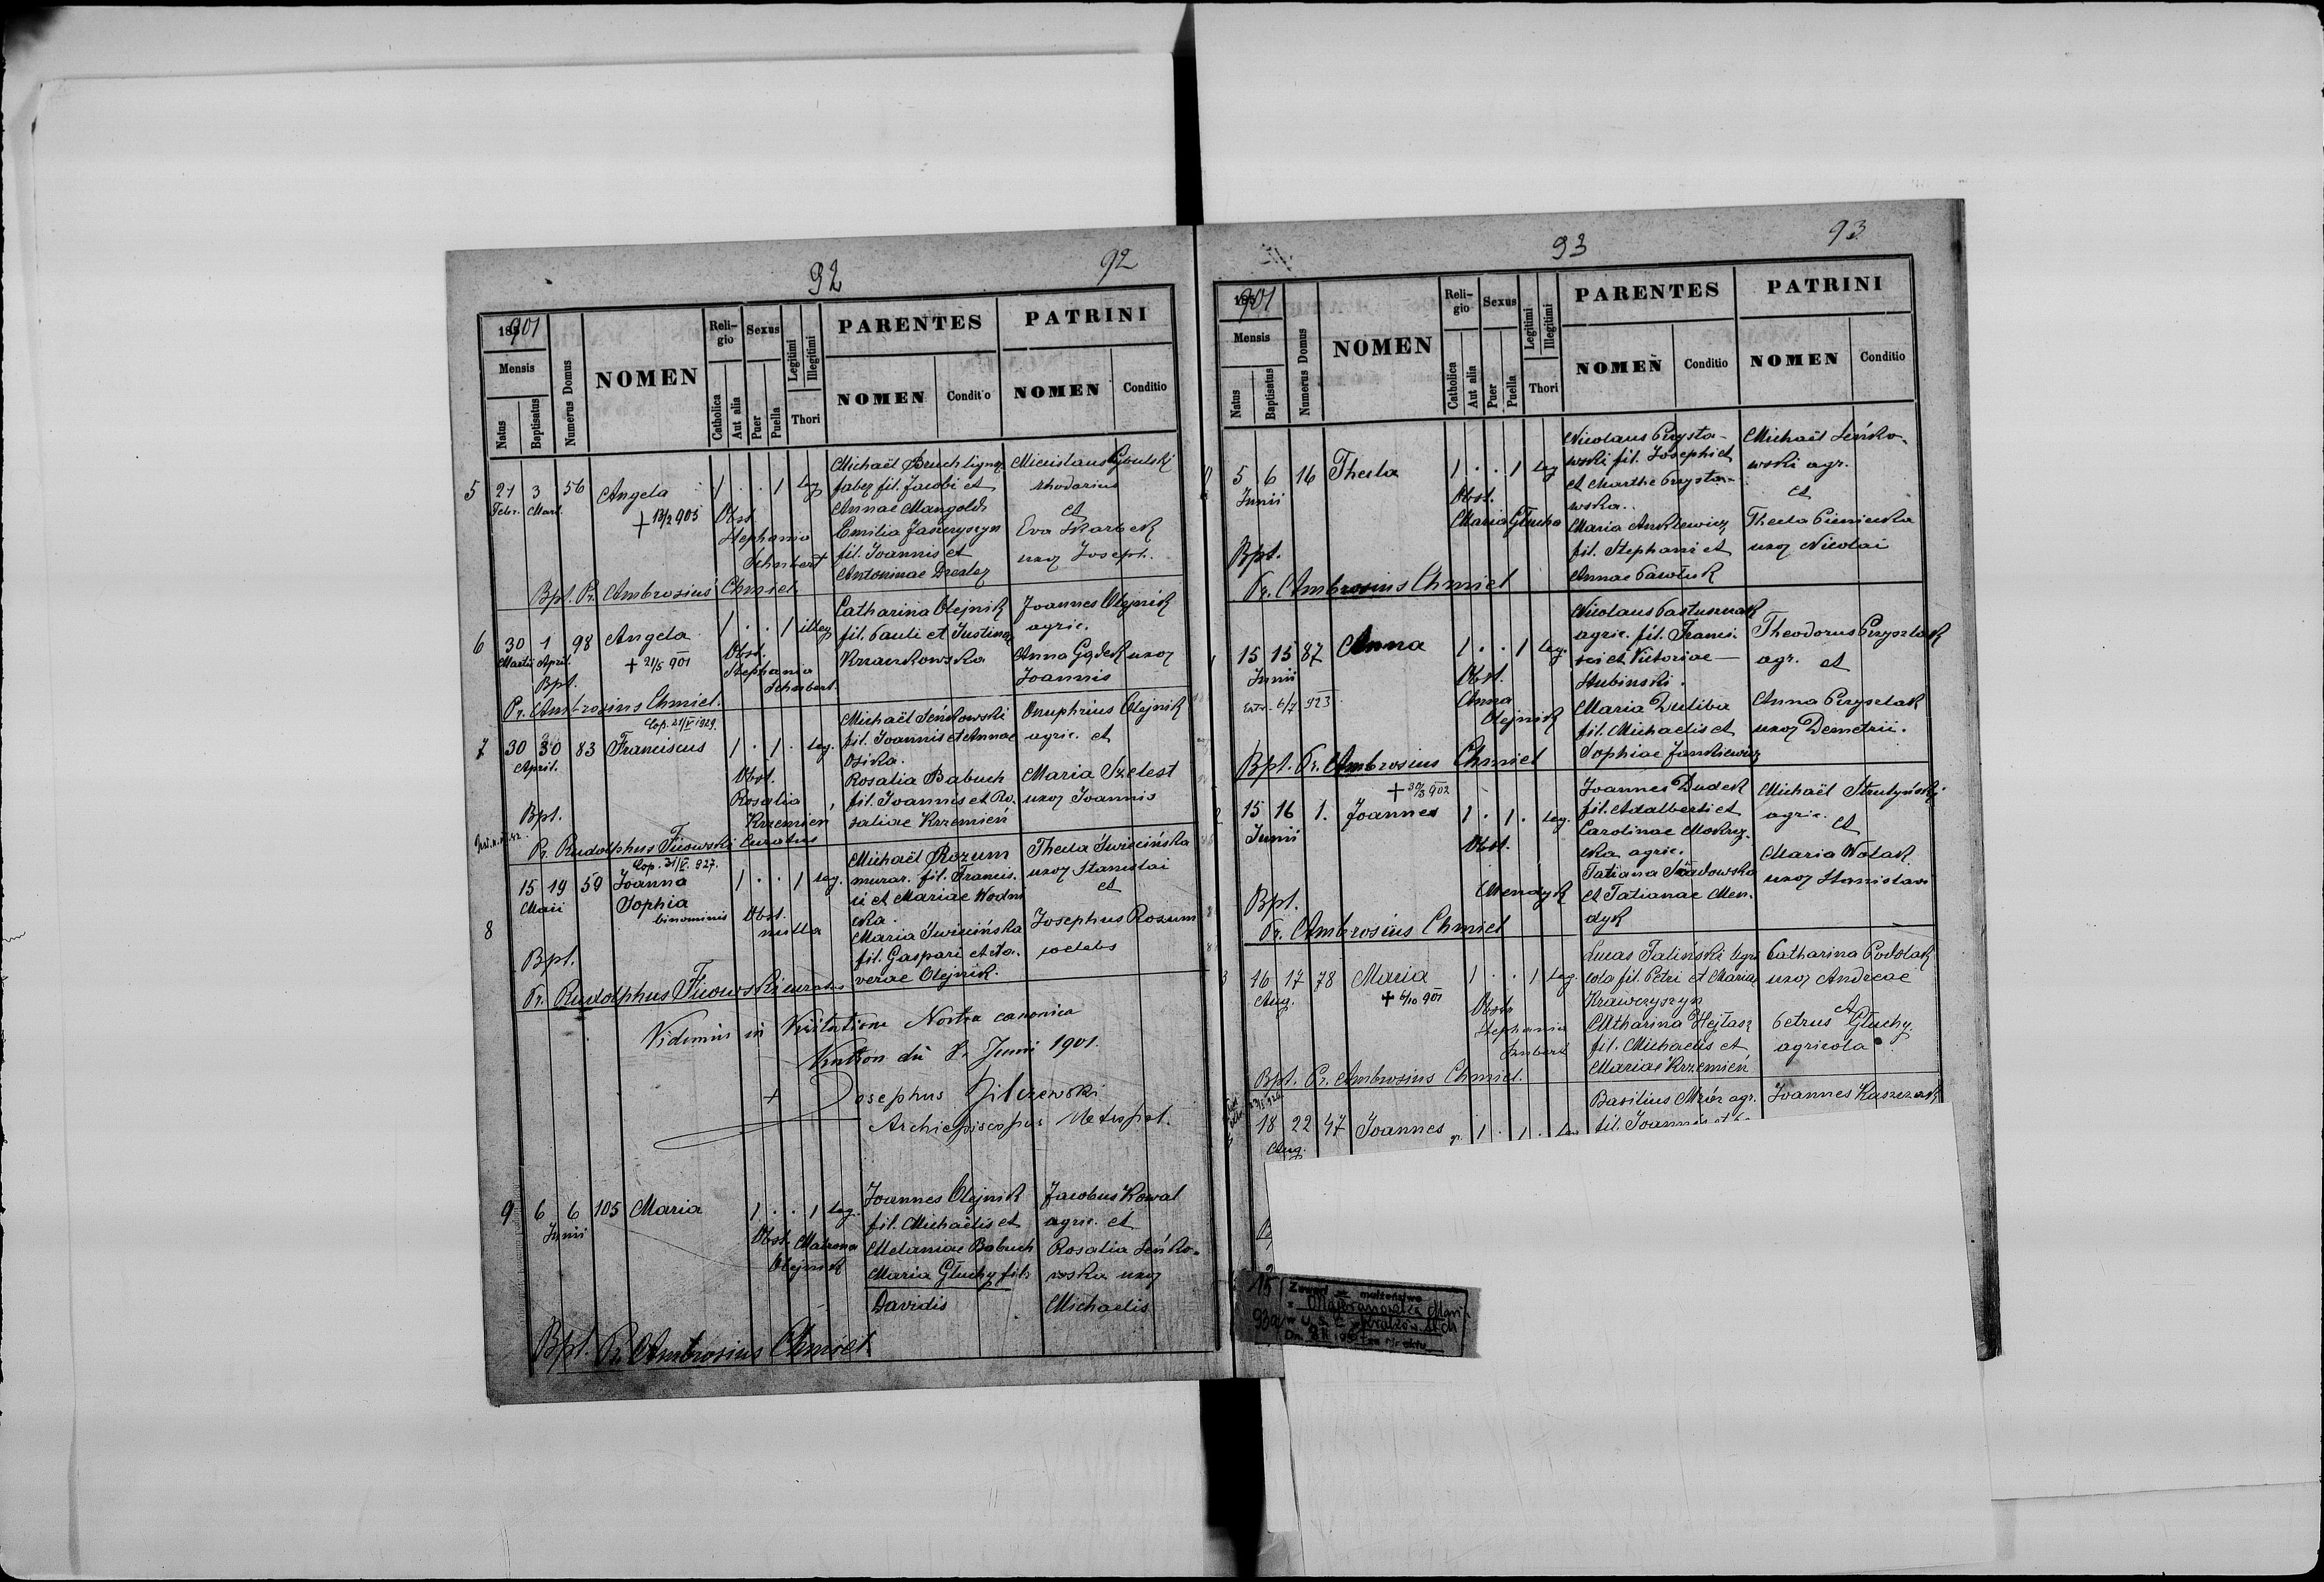 92
92
1901
Mensis
Natus
Baptisatus
Numerus Domus
NOMEN
Reli-
gio
Catholica
Aut alia
Sexus
Puer
Puella
Legitimi
Illegitimi
Thori
PARENTES
NOMEN
Conditio
PATRINI
NOMEN
Conditio
5 21 3 56 Angela 1 . . 1 leg
Febr. Mart.
+ 13/2 905
Obst.
Stephania
Schubert
Michaël Bruch lign.
faber fil. Jacobi et
Annae Mangold
Emilia Jaszczyszyn
fil. Joannis et
Antoninae Drexler
Miecislaus Cybulski
rhodarius
et
Eva Skarbek
uxor Joseph.
Bpt. Pr. Ambrosius Chmiel.
6 30 1 98 Angela 1 . . 1 illeg
Martii April.
+ 21/5 901
Obst.
Stephania
Schubert.
Catharina Olejnik
fil. Pauli et Justinae
Joannes Olejnik
agric.
Anna Gądek uxor
Joannis
Bpt.
Pr. Ambrosius Chmiel.
Cop. 21/V 1929.
7 30 30 83 Franciscus 1 . 1 . leg.
April.
Obst.
Rosalia
Krzemień
Michaël Seńkowski
fil. Joannis et Annae
Osika.
Rosalia Babuch
fil. Joannis et Ro-
saliae Krzemień
Onuphrius Olejnik
agric. et
Maria Szelest
uxor Joannis
Bpt.
Pr. Rudolphus Ficowski curatus
Cop. 31/V. 927.
8 15 19 59 Joanna 1 . . 1 leg.
Maii
Sophia
binominis
Obst.
nulla
Michaël Rozum
murar. fil. Francis-
ci et Mariae Wodni
cka.
Maria Święcińska
fil. Gaspari et Xa-
verae Olejnik.
Thecla Święcińska
uxor Stanislai
et
Josephus Rozum
coelebs
Bpt.
Pr. Rudolphus Ficowski curatus
Vidimus in Visitatione Nostra canonica
die 8. Junii 1901.
+ Josephus Bilczewski
Archiepiscopus Metropol.
9 6 6 105 Maria 1 . . 1 leg.
Junii
Obst. Matrona
Olejnik
Joannes Olejnik
fil. Michaëlis et
Melaniae Babuch
Maria Głuchy fil.
Davidis
Jacobus Kowal
agric. et
Rosalia Seńko-
wska uxor
Michaelis
Bpt. Pr. Ambrosius Chmiel
93
93
1901
Mensis
Natus
Baptisatus
Numerus Domus
NOMEN
Reli-
gio
Catholica
Aut alia
Sexus
Puer
Puella
Legitimi
Illegitimi
Thori
PARENTES
NOMEN
Conditio
PATRINI
NOMEN
Conditio
5 6 16 Thecla 1 . . 1 leg
Junii
Obst.
Maria Głucha
Nicolaus Przysta-
wski fil. Josephi et
et Marthe Przysta-
wska.
Maria
fil. Stephani et
Annae Pawluk
Michaël Seńko-
wski agr.
et
Thecla Pieniecka
uxor Nicolai
Bpt.
Pr. Ambrosius Chmiel
15 15 87 Anna 1 . . 1 leg.
Junii
6/7 923
Obst.
Anna
Olejnik
Nicolaus Pastusznak
agric. fil. Franci-
sci et Victoriae
Stubinski.
Maria Duliba
fil. Michaelis et
Sophiae Jankiewicz
Theodorus Przyszlak
agr. et
Anna Przyszlak
uxor Demetrii.
Bpt. Pr. Ambrosius Chmiel
+ 30/3 902
15 16 1. Joannes 1 . 1 . leg.
Junii
Obst.
Mendyk
Joannes Dudek
fil. Adalberti et
Carolinae Mokrzy-
cka agric.
Tatiana Sadowska
et Tatianae Men-
dyk
Michaël Strutyński
agric.
et
Maria Wolak
uxor Stanislavi
Bpt.
Pr. Ambrosius Chmiel
3 16 17 78 Maria 1 . . 1 leg.
Aug.
+ 6/10 901
Obst.
Stephania
Lucas Taliński agri
cola fil. Petri et Mariae
Krawczyszyn
Catharina Hejtasz
fil. Michaelis et
Mariae Krzemień
Catharina Podolak
uxor Andreae
et
Petrus Głuchy.
agricola
Bpt. Pr. Ambrosius Chmiel.
18 22 47 Joannes 1 . 1 .
Aug.
Basilius Mróz agr.
fil. Joannis
Joannes Kaszczak
Zawarł małżeństwo
z
w U.S.C. Kraków
Dn.